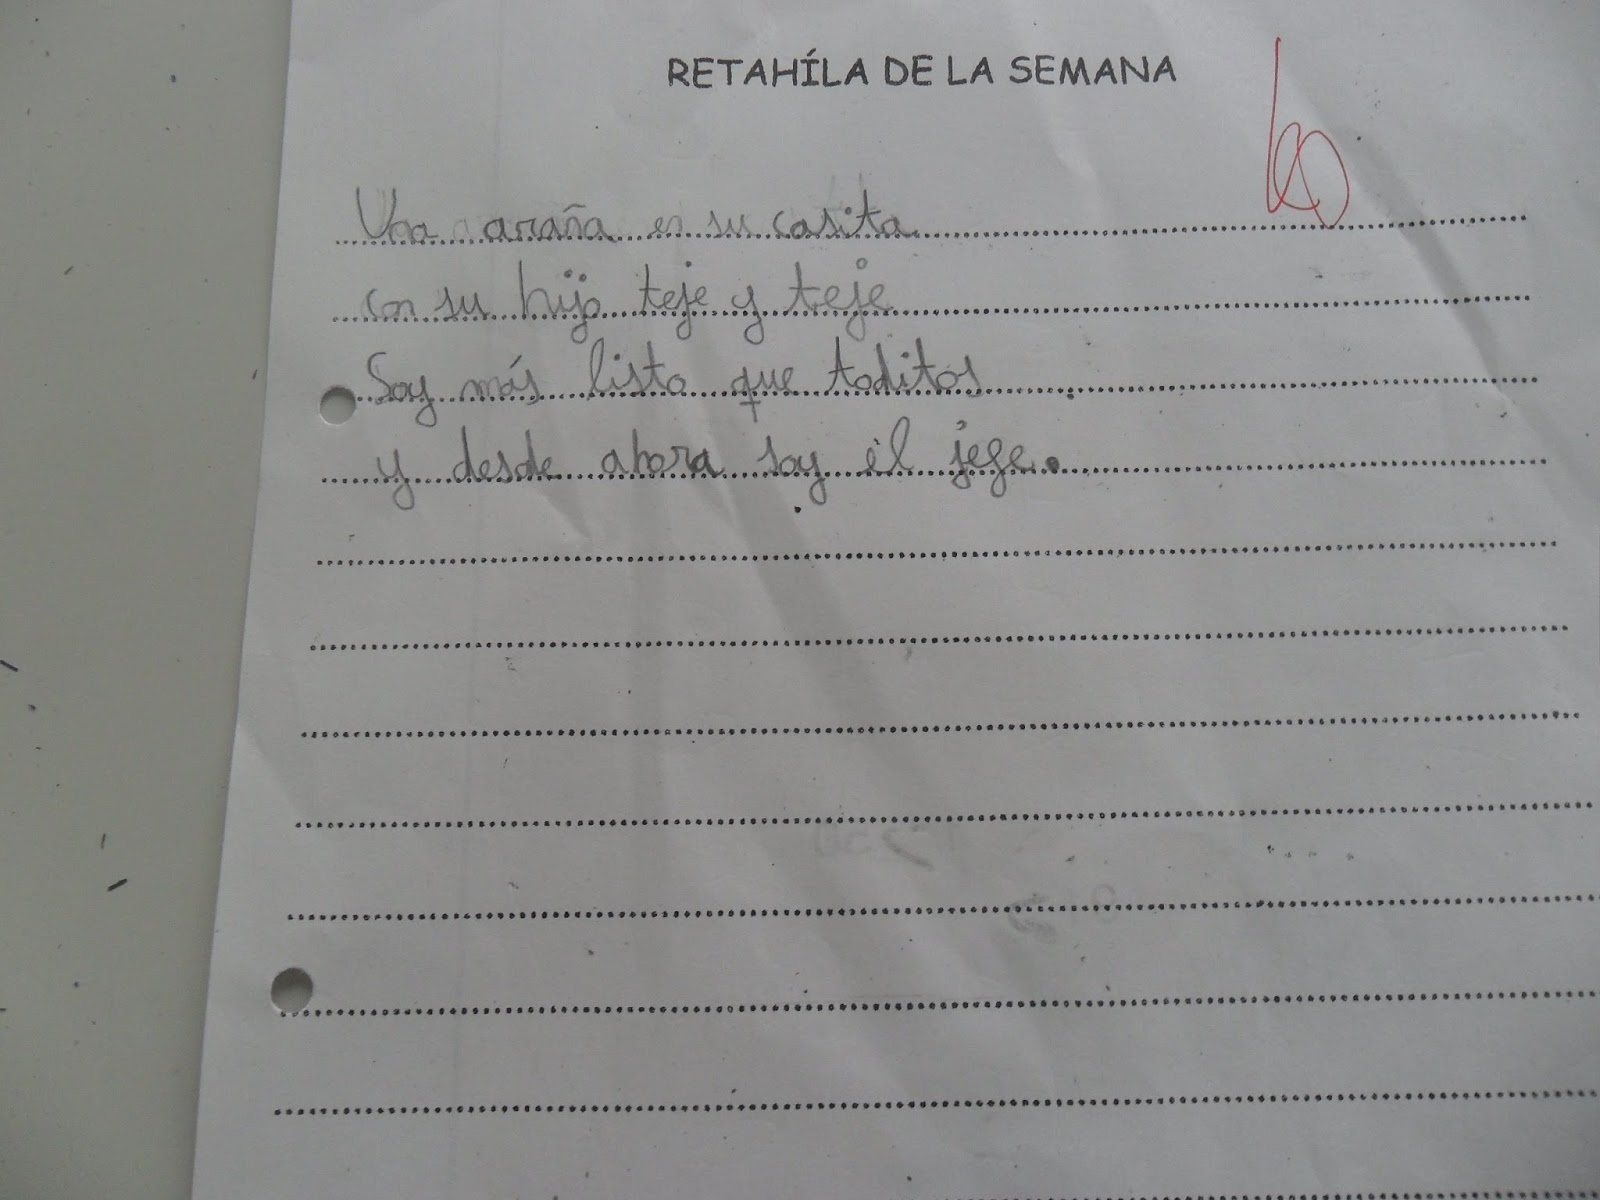 RETAHÍLA DE LA SEMANA
Una araña en su casita
con su hijo teje y teje
Soy más listo que toditos
y desde ahora soy él jefe.